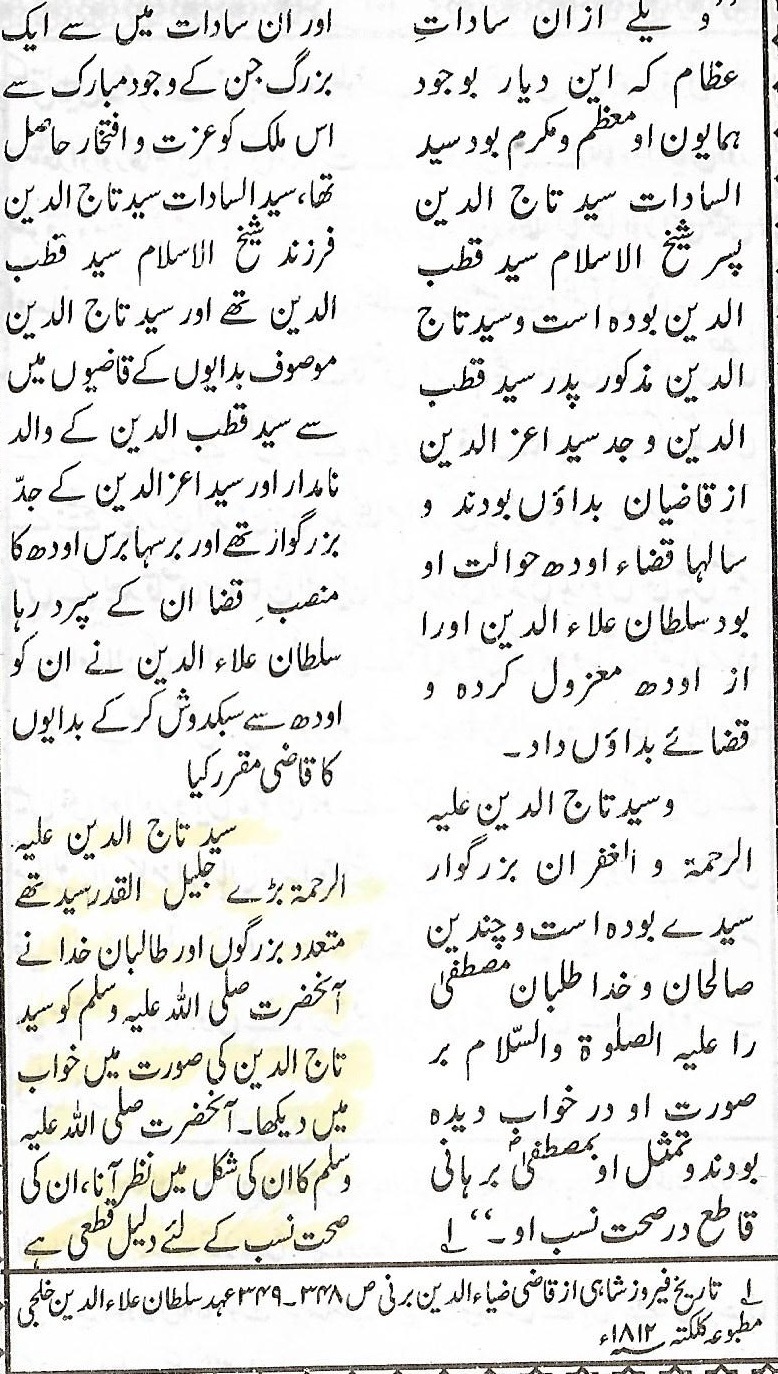 ”و یکے ازان سادات
عظام کہ این دیار بوجود
ہمایون او معظم و مکرم بود سید
السادات سید تاج الدین
پسر شیخ الاسلام سید قطب
الدین بودہ است و سید تاج
الدین مذکور پدر سید قطب
الدین و جد سید اعز الدین
از قاضیان بداؤں بودند و
سالہا قضاء اودھ حوالت او
بود سلطان علاء الدین اورا
از اودھ معزول کردہ و
قضائے بداؤں داد۔
و سید تاج الدین علیہ
الرحمۃ و الغفران بزرگوار
سیدے بودہ است و چندین
صالحان و خدا طلبان مصطفیٰ
را علیہ الصلوٰۃ والسّلام بر
صورت او در خواب دیدہ
بودند و تمثل او بمصطفیٰؐ برہانی
قاطع در صحت نسب او۔“ ۱؎
اور ان سادات میں سے ایک
بزرگ جن کے وجود مبارک سے
اس ملک کو عزت و افتخار حاصل
تھا، سید السادات سید تاج الدین
فرزند شیخ الاسلام سید قطب
الدین تھے اور سید تاج الدین
موصوف بدایوں کے قاضیوں میں
سے سید قطب الدین کے والد
نامدار اور سید اعز الدین کے جدّ
بزرگوار تھے اور برسہا برس اودھ کا
منصبِ قضا ان کے سپرد رہا
سلطان علاء الدین نے ان کو
اودھ سے سبکدوش کر کے بدایوں
کا قاضی مقرر کیا
سید تاج الدین علیہ
الرحمۃ بڑے جلیل القدر سید تھے
متعدد بزرگوں اور طالبان خدا نے
آنحضرت صلی اللہ علیہ وسلم کو سید
تاج الدین کی صورت میں خواب
میں دیکھا۔ آنحضرت صلی اللہ علیہ
وسلم کا ان کی شکل میں نظر آنا، ان کی
صحت نسب کے لئے دلیل قطعی ہے
۱؎ تاریخ فیروز شاہی از قاضی ضیاء الدین برنی ص ۳۴۸۔۳۴۹ عہد سلطان علاء الدین خلجی
مطبوعہ کلکتہ ۱۸۱۲ء